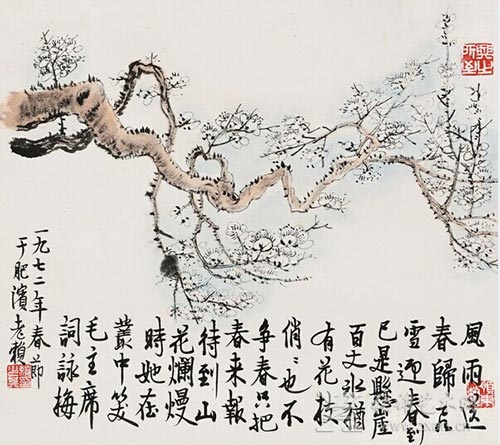 風雨送
春歸飞
雪迎春到
已是懸崖
百丈冰猶
有花枝
俏〻也不
争春只把
春来報
待到山
花爛熳
時她在
叢中笑
毛主席
詞詠梅
一九七二年春節
于肥濱老賴